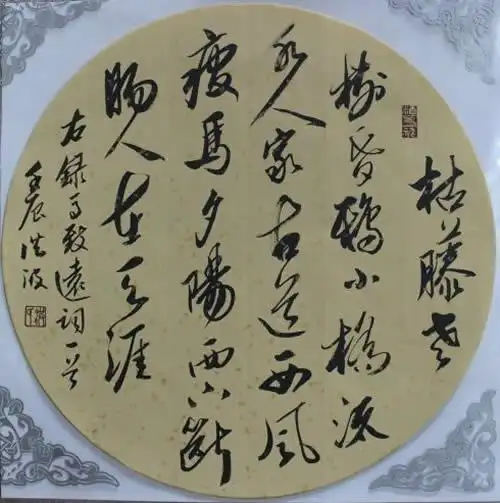 枯藤老
树昏鸦小桥流
水人家古道西风
瘦馬夕陽西下斷
腸人在天涯
右錄马致遠词一首
壬辰洪波